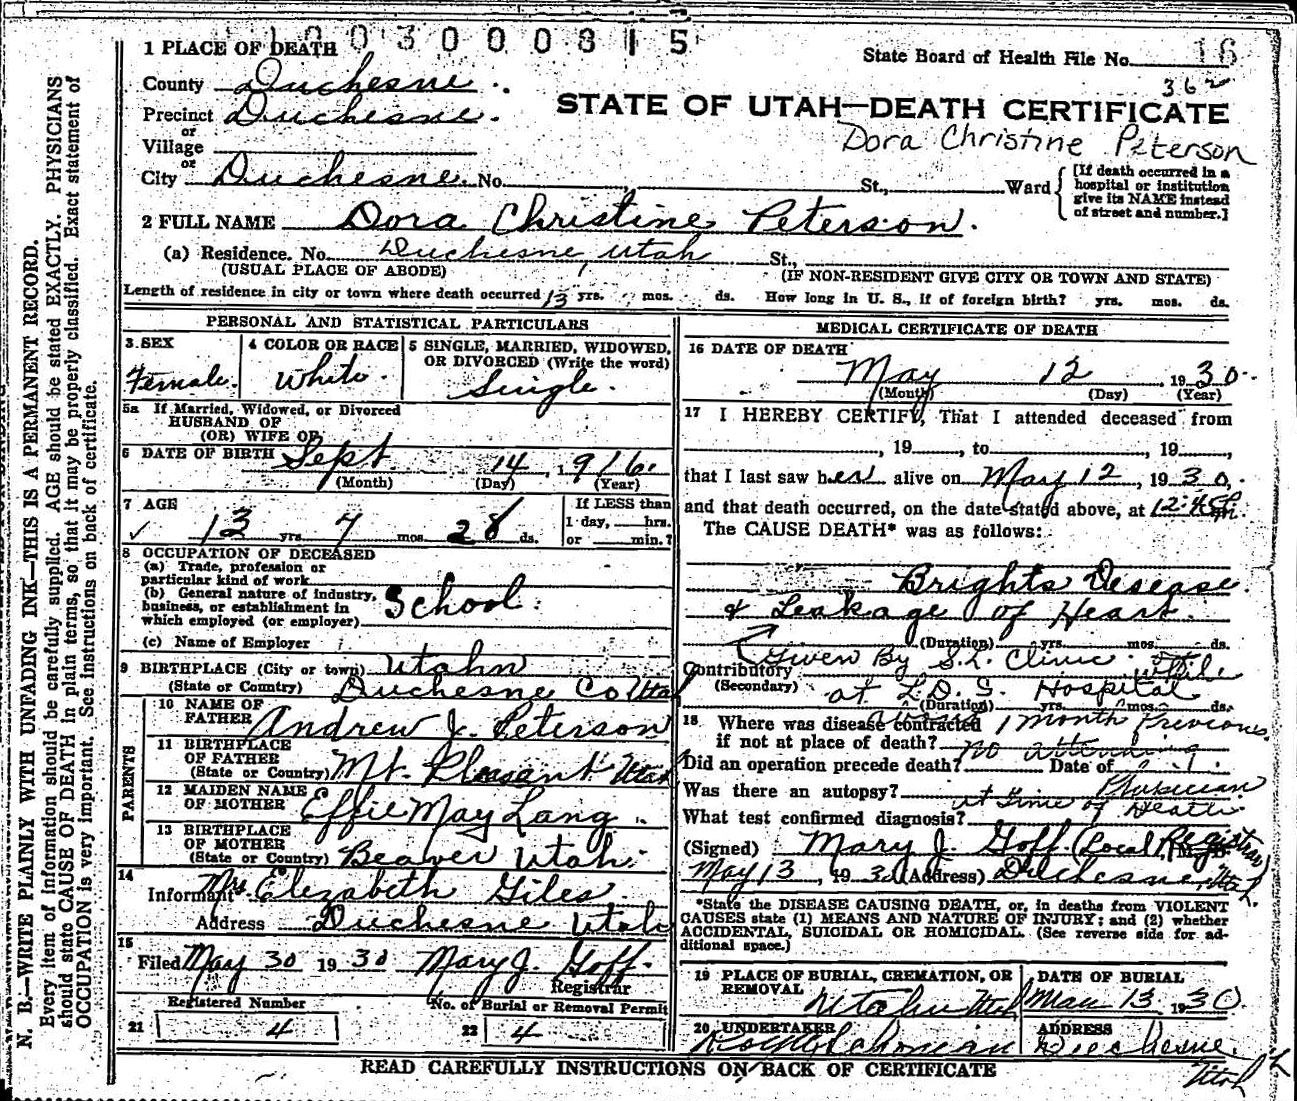 1 0 0 3 0 0 0 3 1 5
1 PLACE OF DEATH
State Board of Health File No. 16
362
County Duchesne
STATE OF UTAH—DEATH CERTIFICATE
Precinct Duchesne.
Dora Christine Peterson
or
Village
or
City Duchesne. No. St., Ward
[If death occurred in a hospital or institution give its NAME instead of street and number.]
2 FULL NAME Dora Christine Peterson.
(a) Residence. No. Duchesne, Utah St.,
(USUAL PLACE OF ABODE) (IF NON-RESIDENT GIVE CITY OR TOWN AND STATE)
Length of residence in city or town where death occurred 13 yrs. mos. ds. How long in U. S., if of foreign birth? yrs. mos. ds.
PERSONAL AND STATISTICAL PARTICULARS
3 SEX
Female.
4 COLOR OR RACE
White.
5 SINGLE, MARRIED, WIDOWED,
OR DIVORCED (Write the word)
Single.
5a If Married, Widowed, or Divorced
HUSBAND OF
(OR) WIFE OF
6 DATE OF BIRTH Sept. 14, 1916.
(Month) (Day) (Year)
7 AGE
13 yrs. 7 mos. 28 ds.
If LESS than
1 day, hrs.
or min.?
8 OCCUPATION OF DECEASED
(a) Trade, profession or
particular kind of work
(b) General nature of industry,
business, or establishment in
which employed (or employer) School.
(c) Name of Employer
9 BIRTHPLACE (City or town) Utahn
(State or Country) Duchesne Co Utah
PARENTS
10 NAME OF
FATHER Andrew J. Peterson
11 BIRTHPLACE
OF FATHER
(State or Country) Mt. Pleasant Utah
12 MAIDEN NAME
OF MOTHER Effie May Lang
13 BIRTHPLACE
OF MOTHER
(State or Country) Beaver Utah.
14
Informant Mrs. Elizabeth Giles
Address Duchesne Utah
15
Filed May 30 1930 Mary J. Goff.
Registrar
Registered Number
21 4
No. of Burial or Removal Permit
22 4
MEDICAL CERTIFICATE OF DEATH
16 DATE OF DEATH
May 12, 1930.
(Month) (Day) (Year)
17 I HEREBY CERTIFY, That I attended deceased from
, 19 , to , 19 ,
that I last saw her alive on May 12, 1930,
and that death occurred, on the date stated above, at m.
The CAUSE DEATH* was as follows:
Brights Desease
& Leakage of Heart.
(Duration) yrs. mos. ds.
Given By S.L. Clinic. While
Contributory
(Secondary) at L.D.S. Hospital
(Duration) yrs. mos. ds.
1 month Previous.
18 Where was disease contracted
if not at place of death? no attending
Did an operation precede death? Date of
Physician
Was there an autopsy?
at Time of Death
What test confirmed diagnosis?
(Signed) Mary J. Goff (Local Registrar)
May 13, 1930 (Address) Duchesne, Utah.
*State the DISEASE CAUSING DEATH, or, in deaths from VIOLENT
CAUSES state (1) MEANS AND NATURE OF INJURY; and (2) whether
ACCIDENTAL, SUICIDAL OR HOMICIDAL. (See reverse side for ad-
ditional space.)
19 PLACE OF BURIAL, CREMATION, OR
REMOVAL
Utahn Utah
DATE OF BURIAL
May 13 1930.
20 UNDERTAKER
ADDRESS
Duchesne.
Utah
READ CAREFULLY INSTRUCTIONS ON BACK OF CERTIFICATE
N. B.—WRITE PLAINLY WITH UNFADING INK—THIS IS A PERMANENT RECORD.
Every item of information should be carefully supplied. AGE should be stated EXACTLY. PHYSICIANS
should state CAUSE OF DEATH in plain terms, so that it may be properly classified. Exact statement of
OCCUPATION is very important. See instructions on back of certificate.